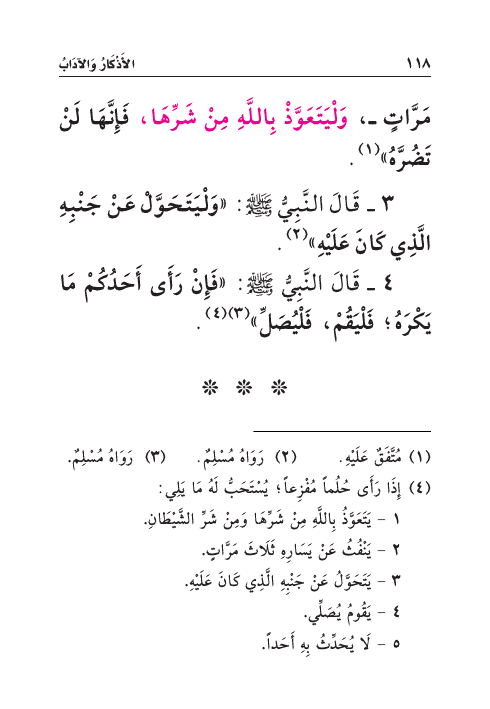 ١١٨ الأَذْكَارُ وَالآدَابُ
مَرَّاتٍ ـ، وَلْيَتَعَوَّذْ بِاللَّهِ مِنْ شَرِّهَا، فَإِنَّهَا لَنْ
تَضُرَّهُ»(١).
٣ ـ قَالَ النَّبِيُّ ﷺ: «وَلْيَتَحَوَّلْ عَنْ جَنْبِهِ
الَّذِي كَانَ عَلَيْهِ»(٢).
٤ ـ قَالَ النَّبِيُّ ﷺ: «فَإِنْ رَأَى أَحَدُكُمْ مَا
يَكْرَهُ؛ فَلْيَقُمْ، فَلْيُصَلِّ»(٣)(٤).
(١) مُتَّفَقٌ عَلَيْهِ. (٢) رَوَاهُ مُسْلِمٌ. (٣) رَوَاهُ مُسْلِمٌ.
(٤) إِذَا رَأَى حُلُماً مُفْزِعاً؛ يُسْتَحَبُّ لَهُ مَا يَلِي:
١ - يَتَعَوَّذُ بِاللَّهِ مِنْ شَرِّهَا وَمِنْ شَرِّ الشَّيْطَانِ.
٢ - يَنْفُثُ عَنْ يَسَارِهِ ثَلَاثَ مَرَّاتٍ.
٣ - يَتَحَوَّلُ عَنْ جَنْبِهِ الَّذِي كَانَ عَلَيْهِ.
٤ - يَقُومُ يُصَلِّي.
٥ - لَا يُحَدِّثُ بِهِ أَحَداً.